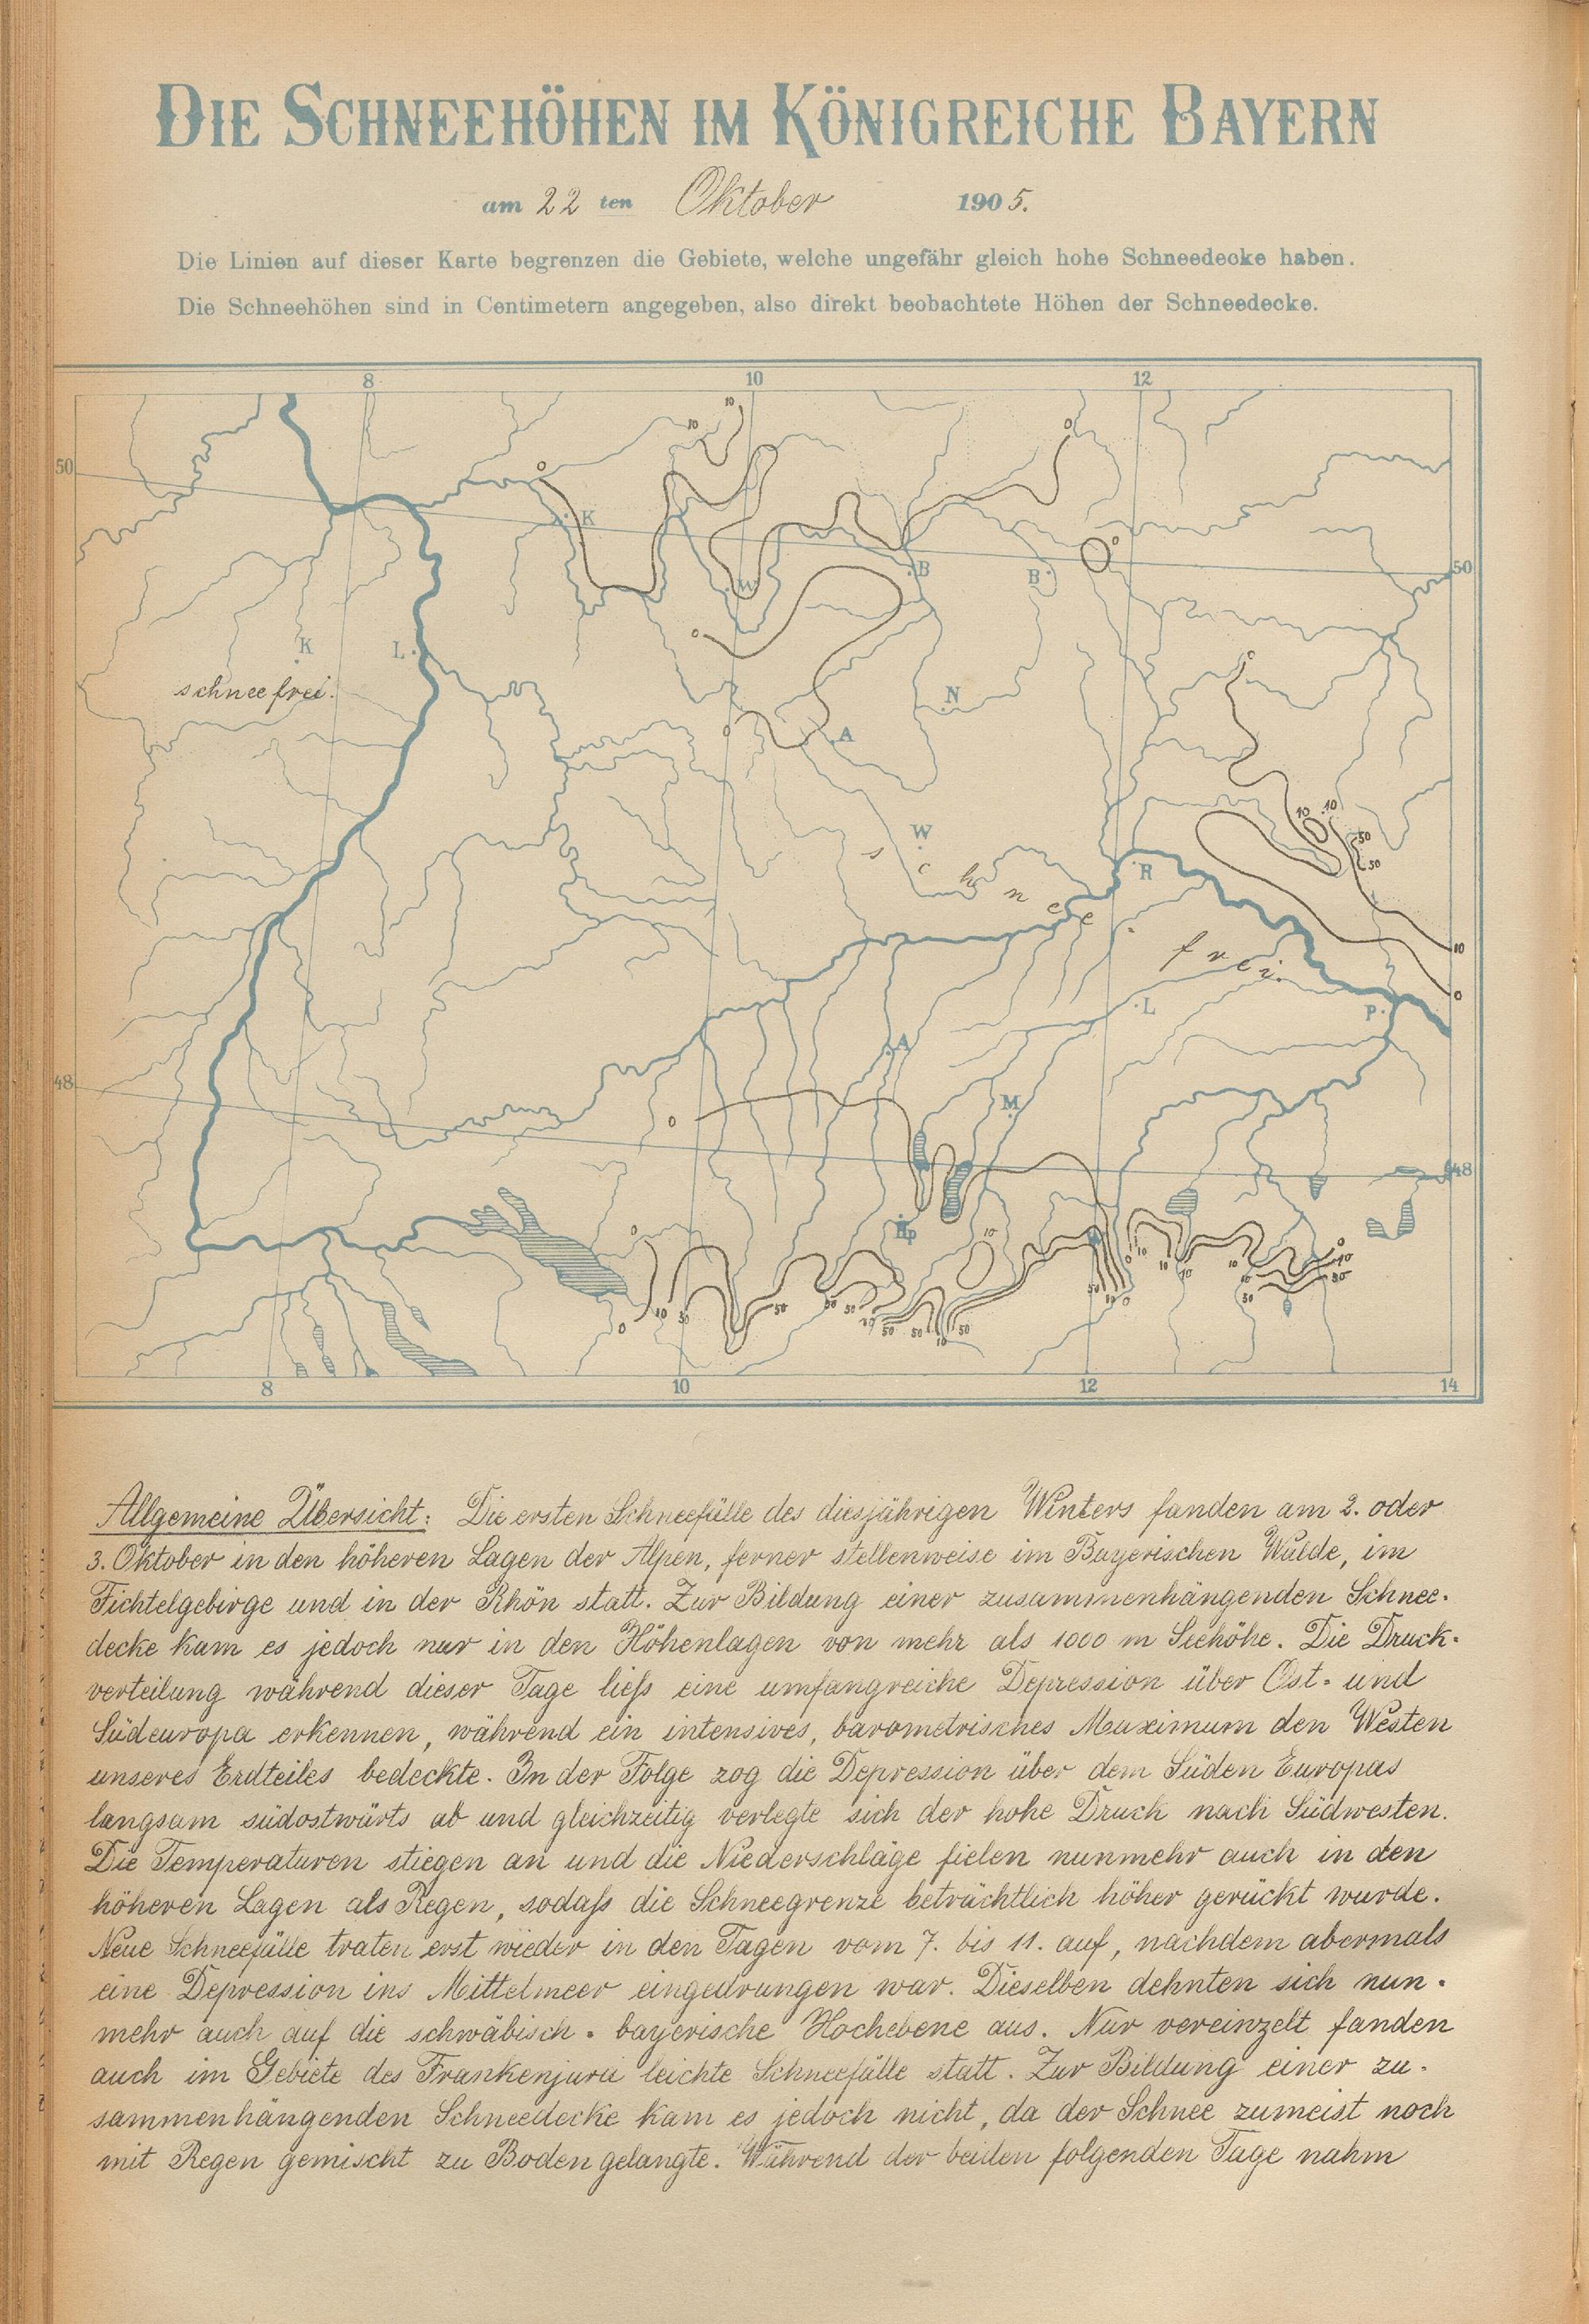 DIE SCHNEEHÖHEN IM KÖNIGREICHE BAYERN
am 22 ten Oktober 1905.
Die Linien auf dieser Karte begrenzen die Gebiete, welche ungefähr gleich hohe Schneedecke haben.
Die Schneehöhen sind in Centimetern angegeben, also direkt beobachtete Höhen der Schneedecke.
8 10 12
10
10 0
50 0
K 0
B B 50
W
0
K L 0
schneefrei.
N
0 A
10 10
W 50
schnee R 50
frei.
10
0
L P
A
48
0 M
48
Hp
0 10 0
10 10 10 10
50 50 50
0 10 50 50 50 50 10 0
50 50 50
10
8 10 12 14
Allgemeine Übersicht: Die ersten Schneefälle des diesjährigen Winters fanden am 2. oder
3. Oktober in den höheren Lagen der Alpen, ferner stellenweise im Bayerischen Walde, im
Fichtelgebirge und in der Rhön statt. Zur Bildung einer zusammenhängenden Schnee-
decke kam es jedoch nur in den Höhenlagen von mehr als 1000 m Seehöhe. Die Druck-
verteilung während dieser Tage ließ eine umfangreiche Depression über Ost- und
Südeuropa erkennen, während ein intensives, barometrisches Maximum den Westen
unseres Erdteiles bedeckte. In der Folge zog die Depression über dem Süden Europas
langsam südostwärts ab und gleichzeitig verlegte sich der hohe Druck nach Südwesten.
Die Temperaturen stiegen an und die Niederschläge fielen nunmehr auch in den
höheren Lagen als Regen, sodaß die Schneegrenze beträchtlich höher gerückt wurde.
Neue Schneefälle traten erst wieder in den Tagen vom 7. bis 11. auf, nachdem abermals
eine Depression ins Mittelmeer eingedrungen war. Dieselben dehnten sich nun-
mehr auch auf die schwäbisch-bayerische Hochebene aus. Nur vereinzelt fanden
auch im Gebiete des Frankenjura leichte Schneefälle statt. Zur Bildung einer zu-
sammenhängenden Schneedecke kam es jedoch nicht, da der Schnee zumeist noch
mit Regen gemischt zu Boden gelangte. Während der beiden folgenden Tage nahm